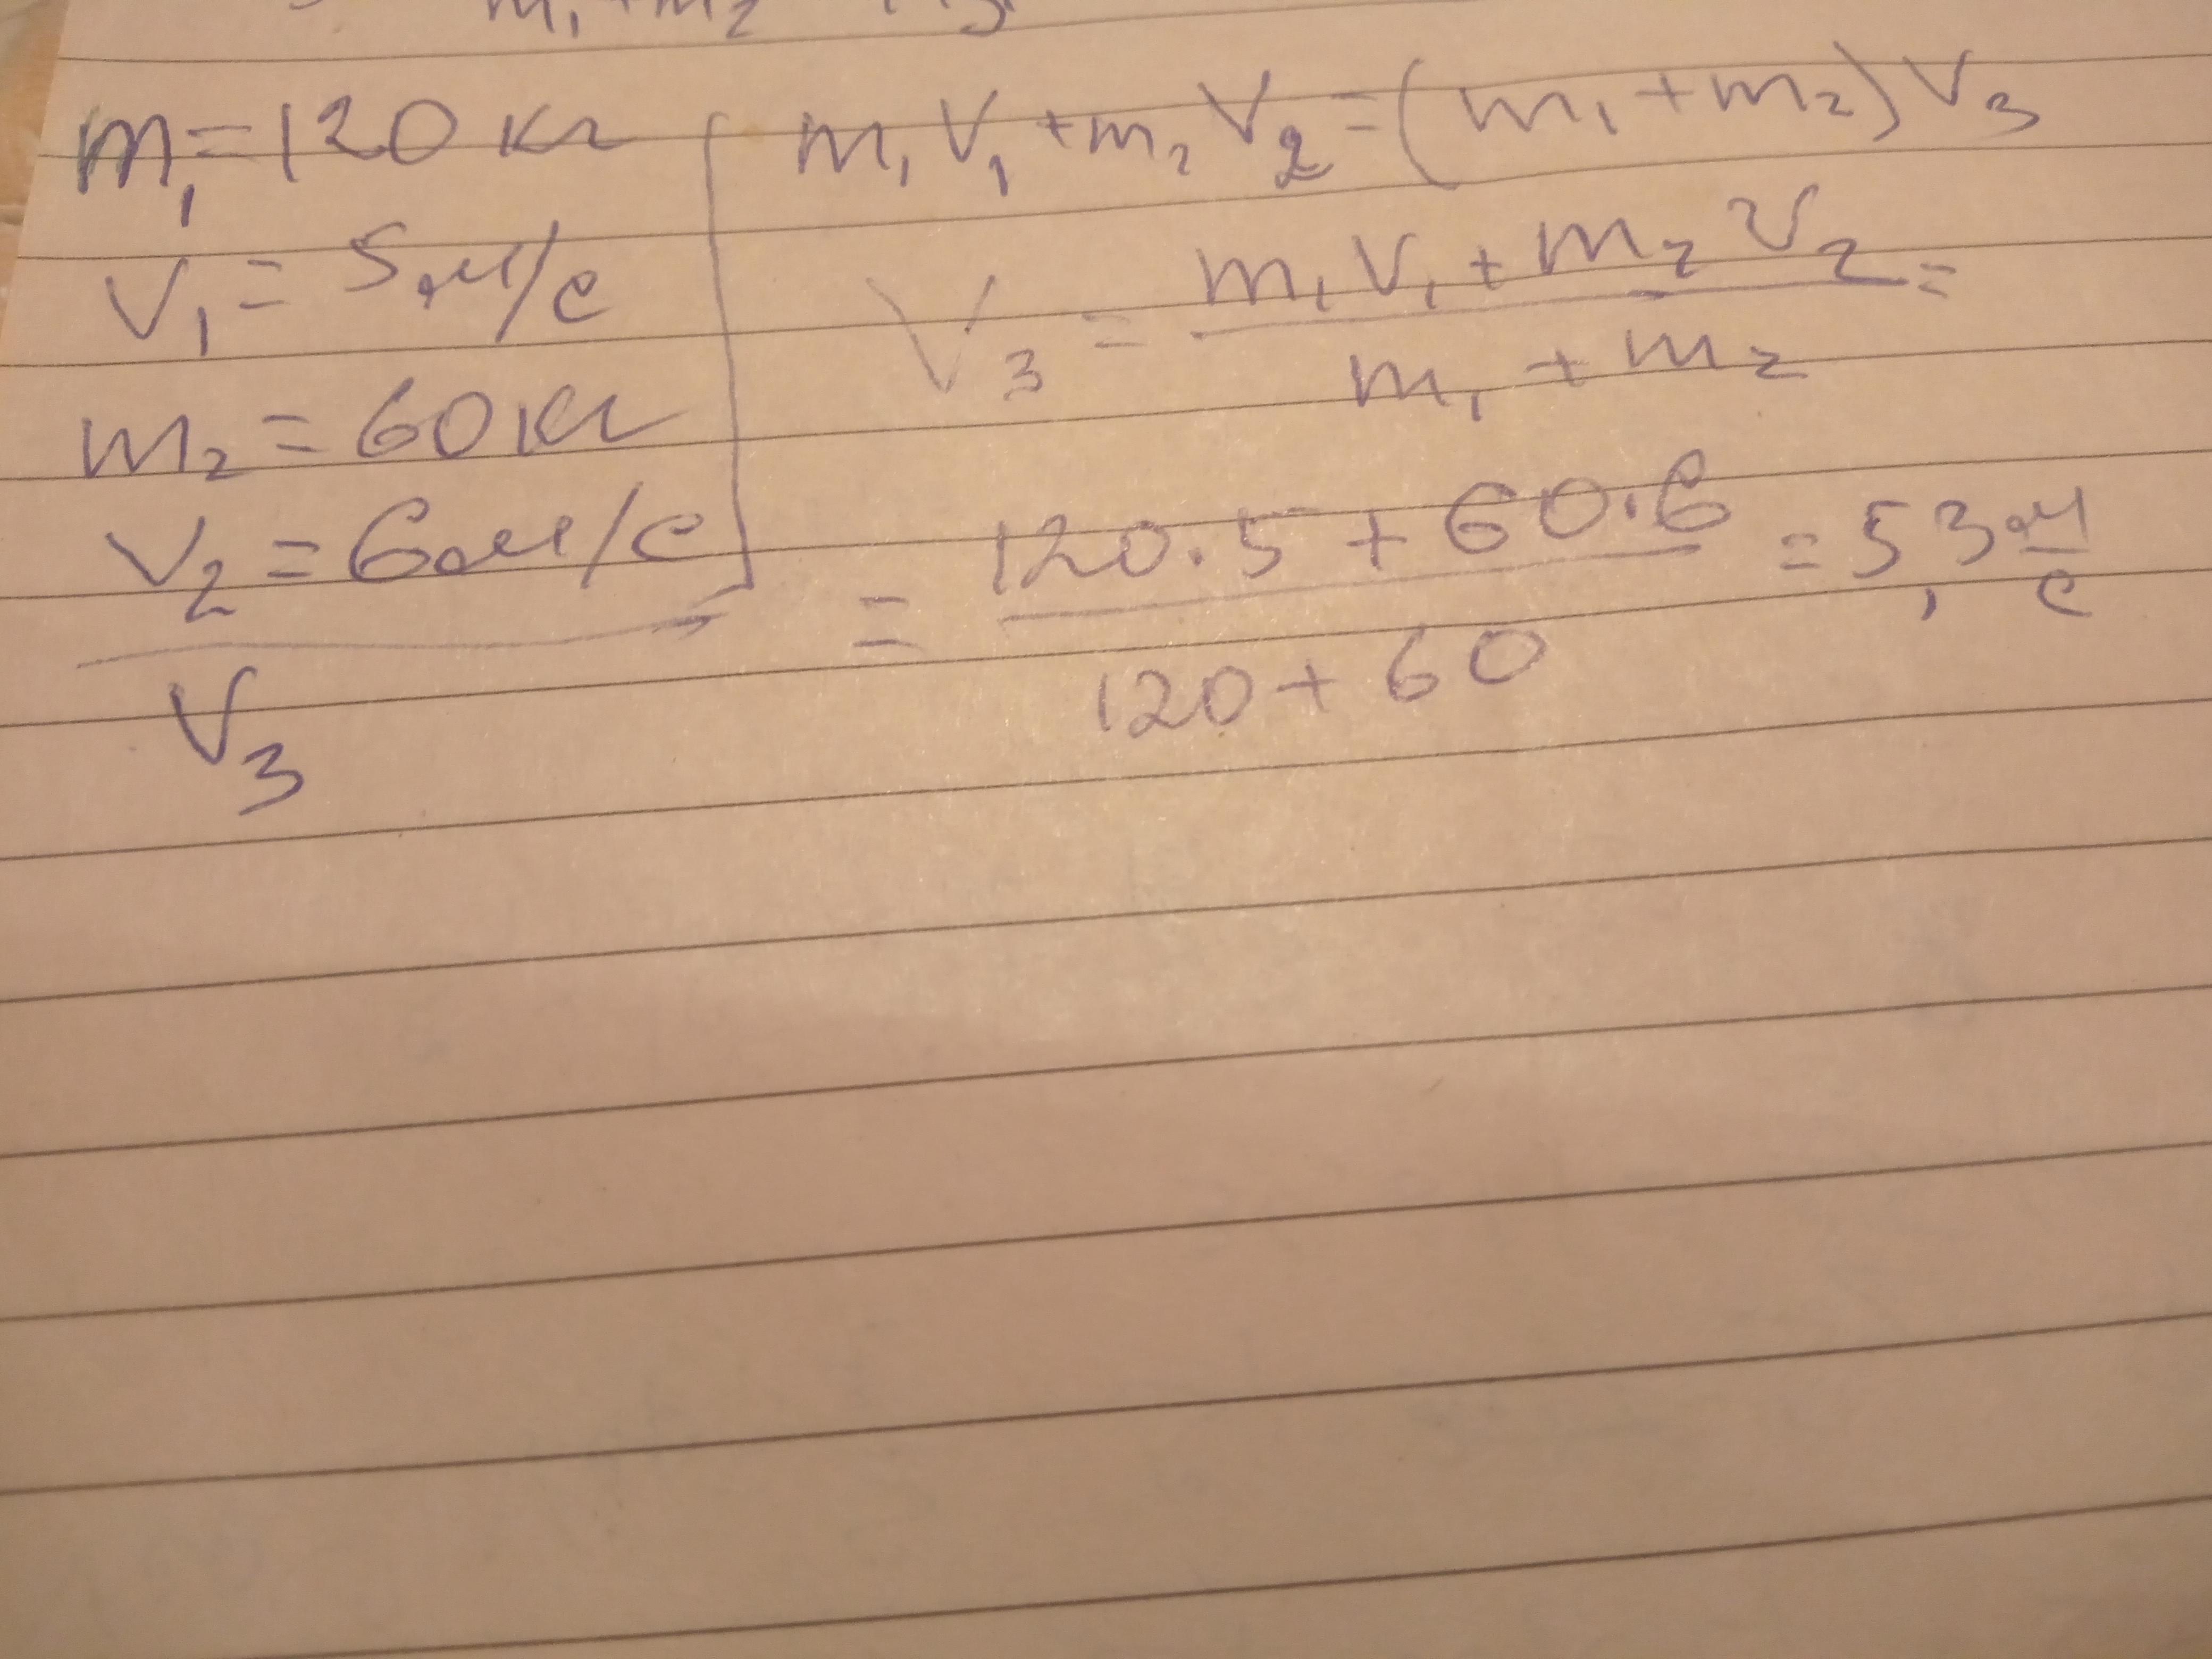 m₁ + m₂
m₁ = 120 кг
V₁ = 5 м/с
m₂ = 60 кг
V₂ = 6 м/с
V₃
m₁ V₁ + m₂ V₂ = (m₁ + m₂) V₃
V₃ = (m₁ V₁ + m₂ V₂) / (m₁ + m₂) =
= (120 · 5 + 60 · 6) / (120 + 60) = 5,3 м/с